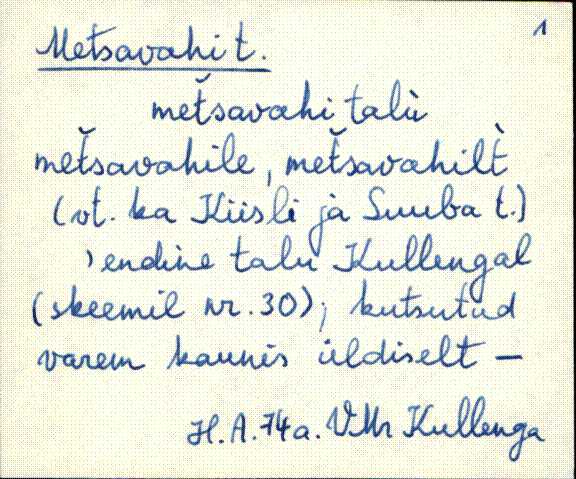 1
Metsavahi t.
meťsavahi talù
meťsavahile, meťsavahilt̀
(vt. ka Kiisli ja Suuba t.)
› endine talu Kullengal
(skeemil nr. 30); kutsutud
varem kaunis üldiselt —
H.A. 74a. VMr Kullenga